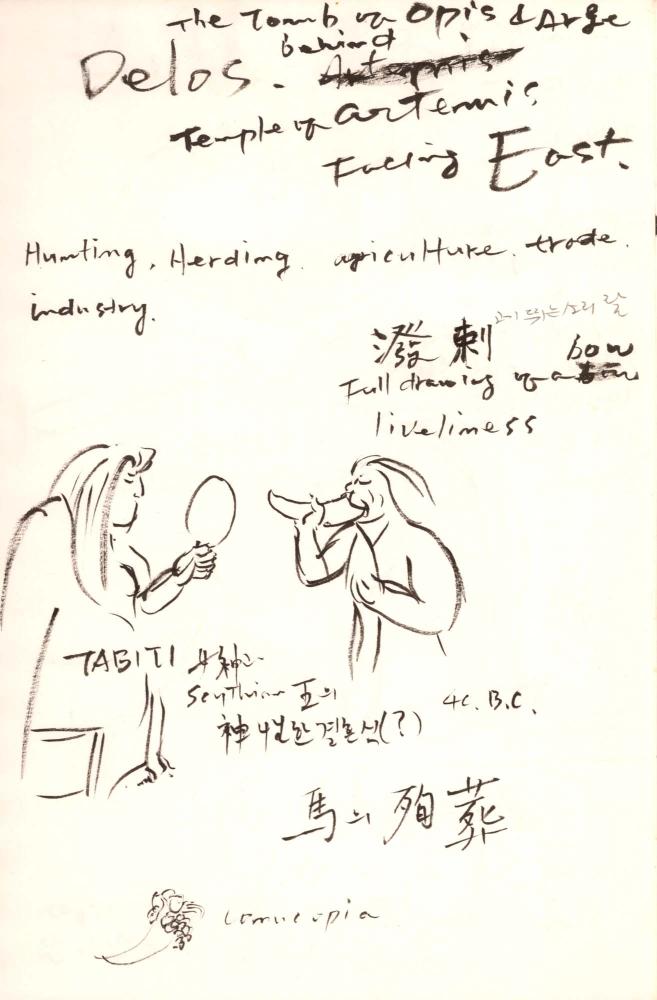 The Tomb of Opis & Arge
behind
Delos. Artemis
Temple of Artemis
Facing East.
Hunting, Herding. agriculture. trade.
industry.
고기 뛰는 소리 랄
潑剌 bow
Full drawing of a
liveliness
TABITI 女神과
Scythian 王의
神性한 결혼식(?) 4C. B.C.
馬의 殉葬
cornucopia